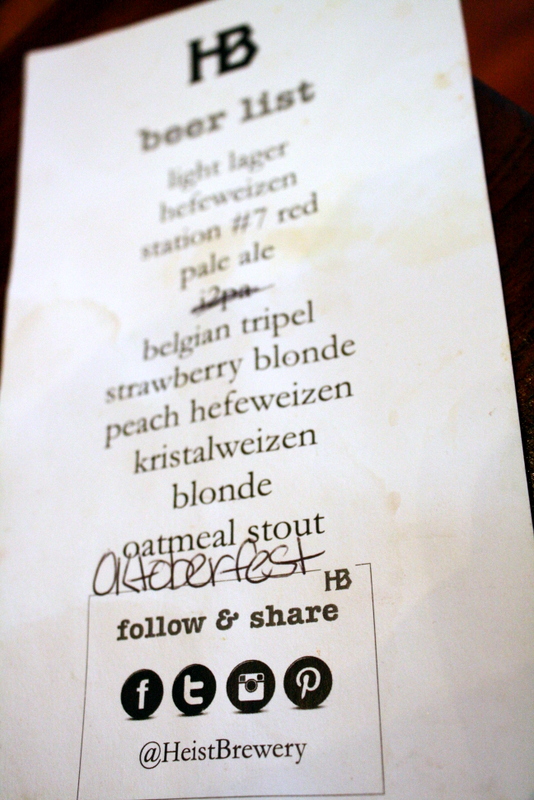 HB
beer list
light lager
hefeweizen
station #7 red
pale ale
i2pa
belgian tripel
strawberry blonde
peach hefeweizen
kristalweizen
blonde
oatmeal stout
Oktoberfest
HB
follow & share
@HeistBrewery